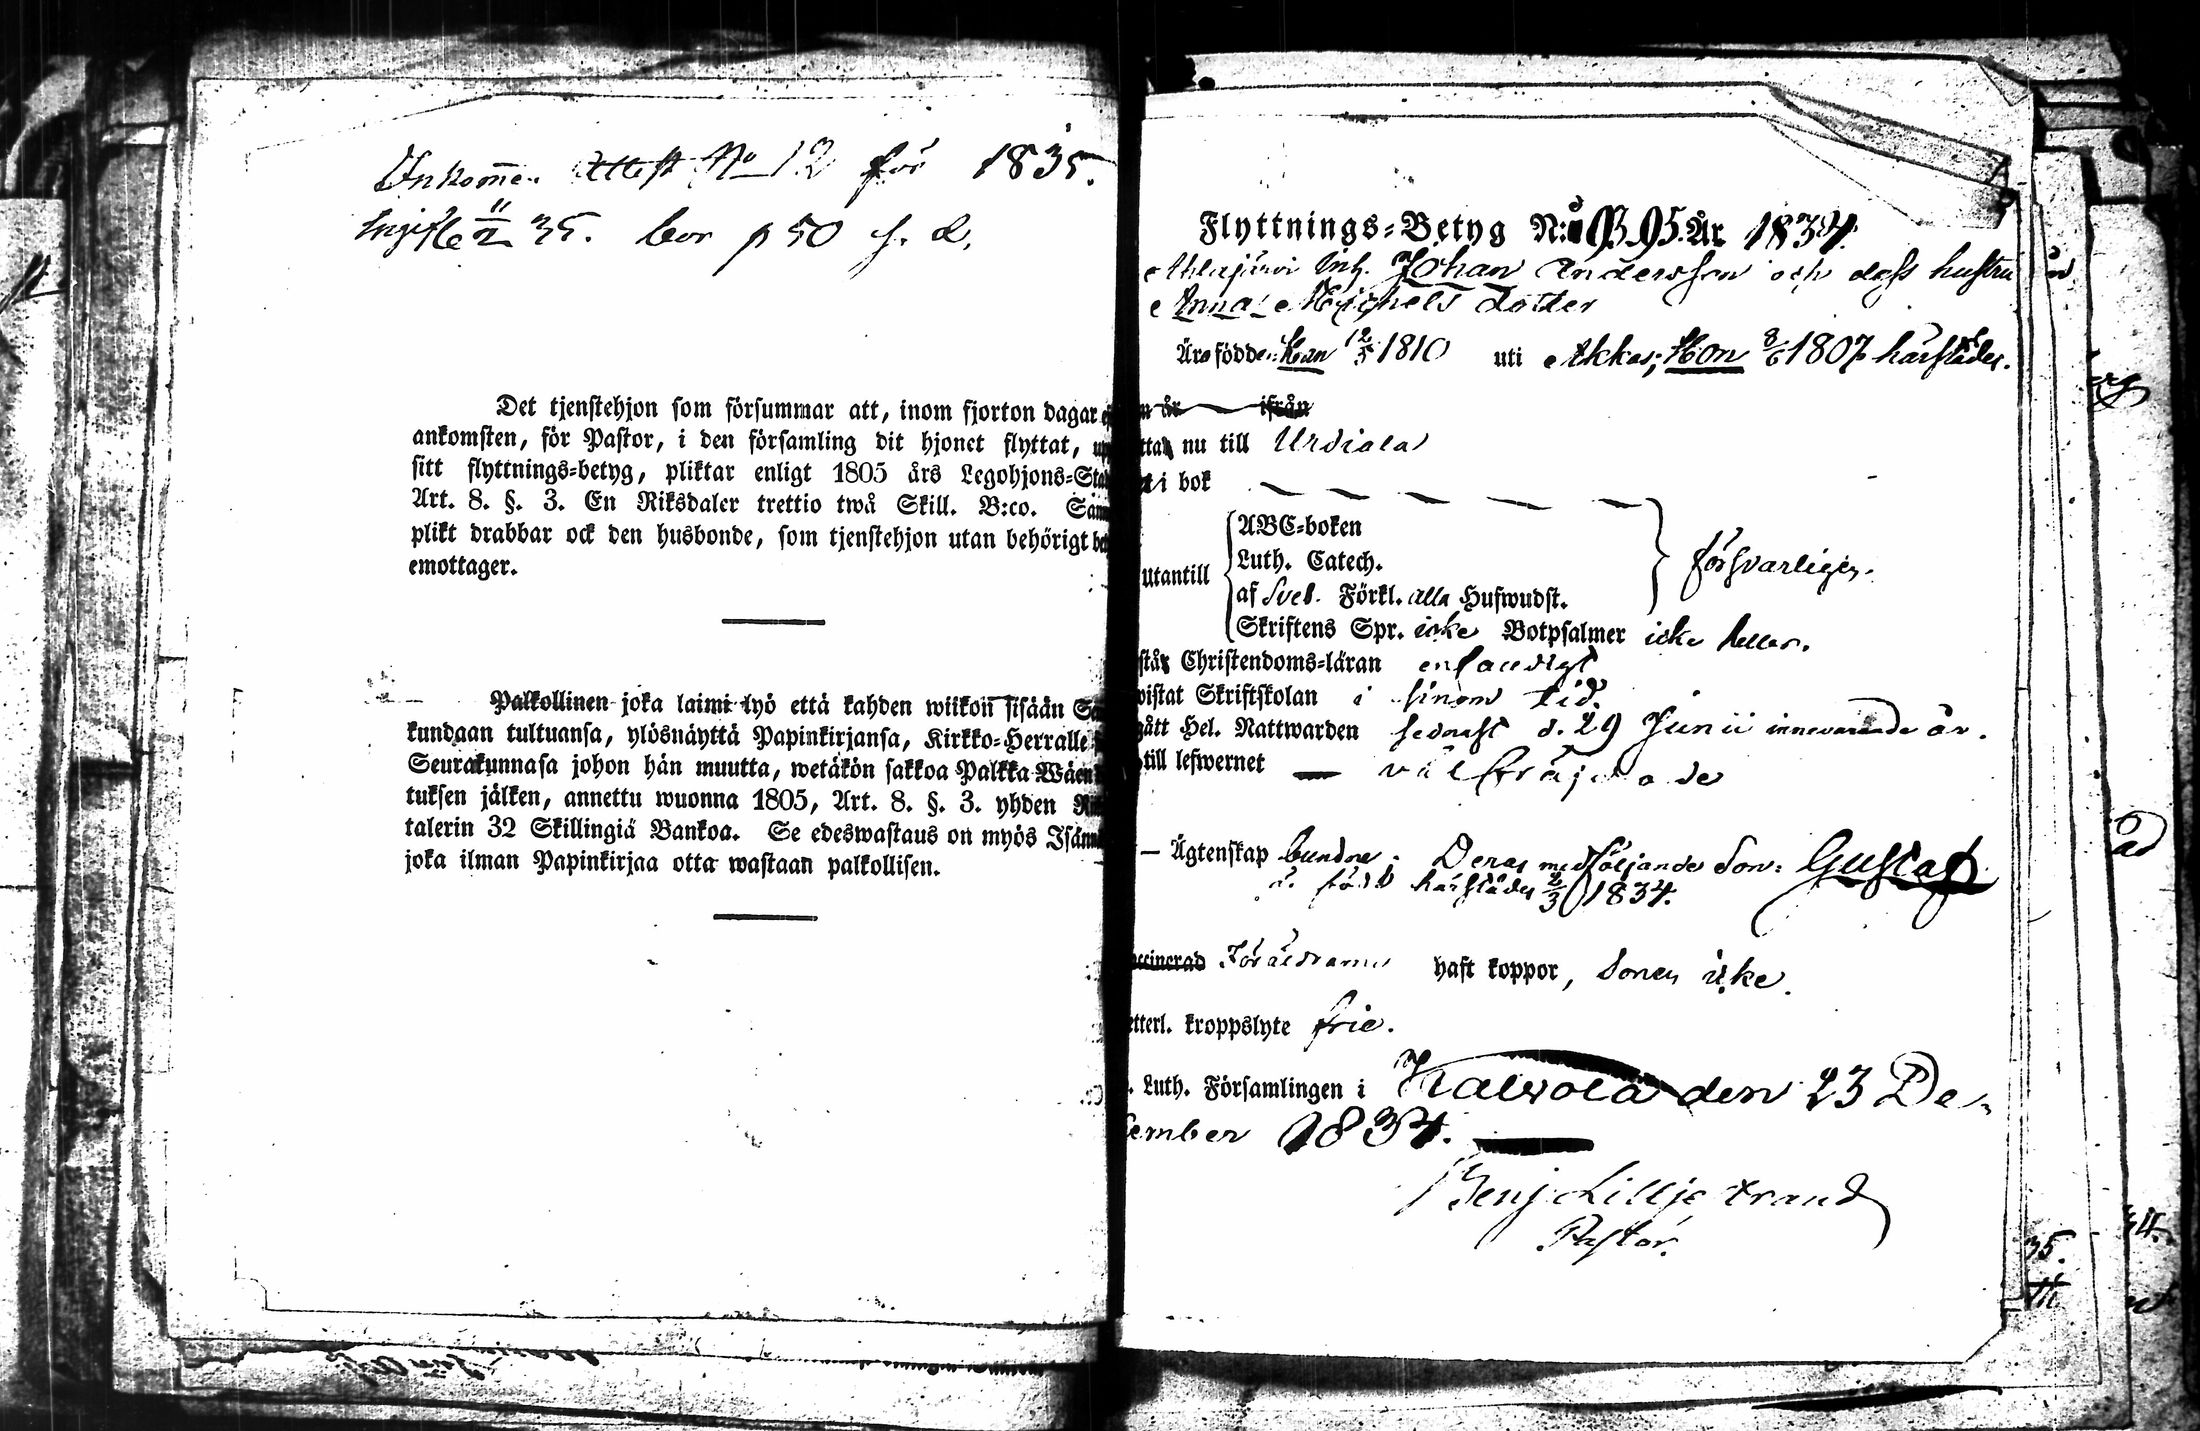 Inkommen Attest No 12 för 1835.
Ingifte 11/2 35. bor p 50 h. d.
Det tjenstehjon som försummar att, inom fjorton dagar
ankomsten, för Pastor, i den församling dit hjonet flyttat,
sitt flyttnings=betyg, pliktar enligt 1805 års Legohjons=Sta
Art. 8. §. 3. En Riksdaler trettio twå Skill. B:co. Sam
plikt drabbar ock den husbonde, som tjenstehjon utan behörigt be
emottager.
Palkollinen joka laimi-lyö että kahden wiikon sisään Sa
kundaan tultuansa, ylösnäyttä Papinkirjansa, Kirkko=Herralle
Seurakunnasa johon hän muutta, wetäkön sakkoa Palkka Wäen
tuksen jälken, annettu wuonna 1805, Art. 8. §. 3. yhden Rik
talerin 32 Skillingiä Bankoa. Se edeswastaus on myös Isänn
joka ilman Papinkirjaa otta wastaan palkollisen.
Flyttnings=Betyg N:o 95. År 1834.
Ahlajärvi Inh. Johan Andersson och dess hustru
Anna Michels dotter
Äro födde: Han 12/5 1810 uti Akkas; Hon 8/6 1807 härstädes.
år ifrån
nu till Urdiala
i bok
ABC=boken
Luth. Catech.
utantill försvarligen.
af Sveb. Förkl. alla Hufwudst.
Skriftens Spr. icke Botpsalmer icke heller.
står Christendoms=läran enfaldigt
wistat Skriftskolan i sinom tid.
gått Hel. Nattwarden sednast d. 29 Junii innevarande år.
till lefwernet — välfräjdade
— Ägtenskap bundne. Deras medföljande Son: Gustaf
är född härstädes 2/3 1834.
ccinerad Föräldrarne haft koppor, Sonen icke.
etterl. kroppslyte frie.
. Luth. Församlingen i Kalvola den 23 De=
cember 1834.
Benj. Lilljestrand
Pastor.